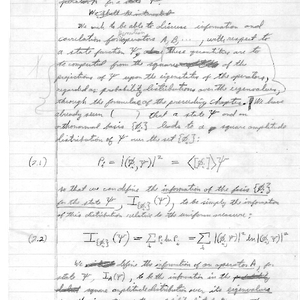 operator A for a state Ψ.
We wish to be able to discuss information and
correlation for operators A, B, ... , with respect to
a state function Ψ, These quantities are to
be computed from the square of the
projections of Ψ upon the eigenstates of the operators,
regarded as probability distributions over the eigenvalues,
through the formulas of the preceding chapter. We have
already seen ( ) that a state Ψ and an
orthonormal basis {φᵢ} leads to a square amplitude
distribution of Ψ over the set {φᵢ}:
(2.1) Pᵢ = |(φᵢ,Ψ)|² = ⟨[φᵢ]⟩Ψ
so that we can define the information of the basis {φᵢ}
for the state Ψ, I{φᵢ}(Ψ), to be simply the information
of this distribution relative to the uniform measure:
(2.2) I{φᵢ}(Ψ) = Σᵢ Pᵢ ln Pᵢ = Σᵢ |(φᵢ,Ψ)|² ln |(φᵢ,Ψ)|²
We define the information of an operator A, for
state Ψ, I_A(Ψ), to be the information in the
square amplitude distribution over its eigenvalues,